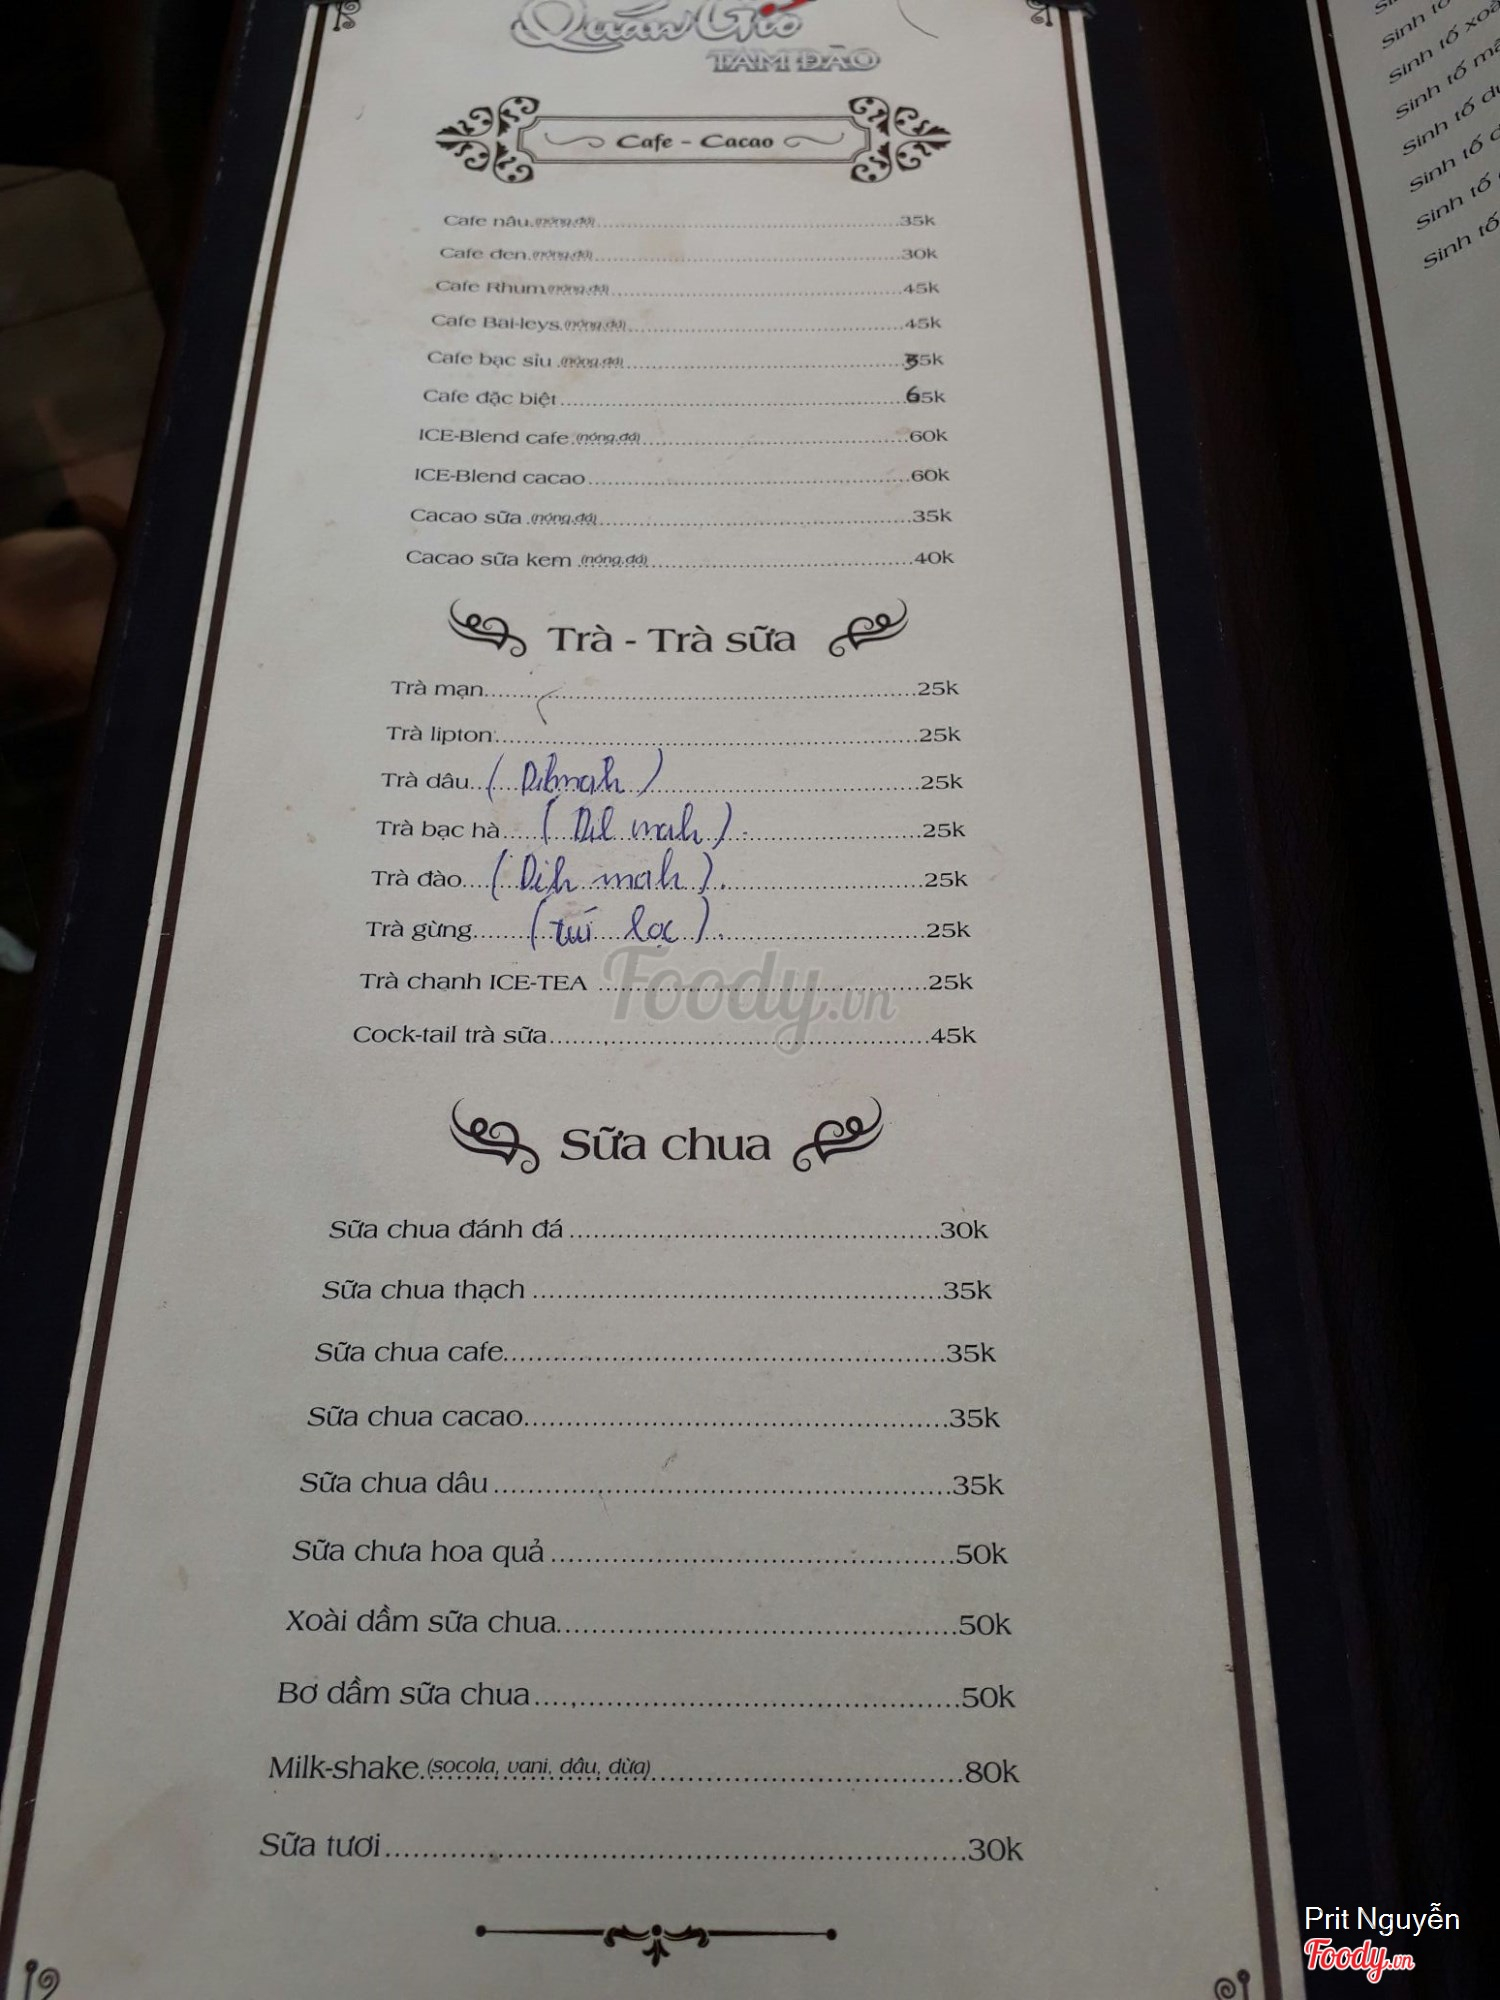 Quán Gió
TAM ĐẢO
Cafe - Cacao
Cafe nâu (nóng,đá) 35k
Cafe đen (nóng,đá) 30k
Cafe Rhum (nóng,đá) 45k
Cafe Bai-leys (nóng,đá) 45k
Cafe bạc sỉu (nóng,đá) 35k
Cafe đặc biệt 65k
ICE-Blend cafe (nóng,đá) 60k
ICE-Blend cacao 60k
Cacao sữa (nóng,đá) 35k
Cacao sữa kem (nóng,đá) 40k
Trà - Trà sữa
Trà mạn 25k
Trà lipton 25k
Trà dâu (Dilmah) 25k
Trà bạc hà (Dil mah) 25k
Trà đào (Dih mah) 25k
Trà gừng (túi lọc) 25k
Trà chanh ICE-TEA 25k
Cock-tail trà sữa 45k
Sữa chua
Sữa chua đánh đá 30k
Sữa chua thạch 35k
Sữa chua cafe 35k
Sữa chua cacao 35k
Sữa chua dâu 35k
Sữa chưa hoa quả 50k
Xoài dầm sữa chua 50k
Bơ dầm sữa chua 50k
Milk-shake (socola, vani, dâu, dừa) 80k
Sữa tươi 30k
Sinh tố
Sinh tố
Sinh tố
Sinh tố
Sinh tố
Sinh tố
Sinh tố
Foody.vn
Prit Nguyễn
Foody.vn